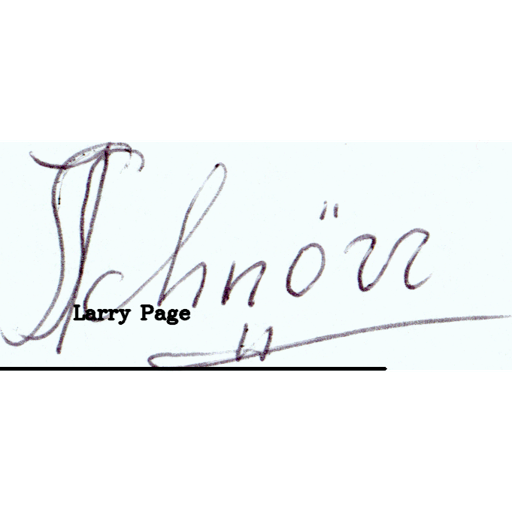 Schnörr
Larry Page